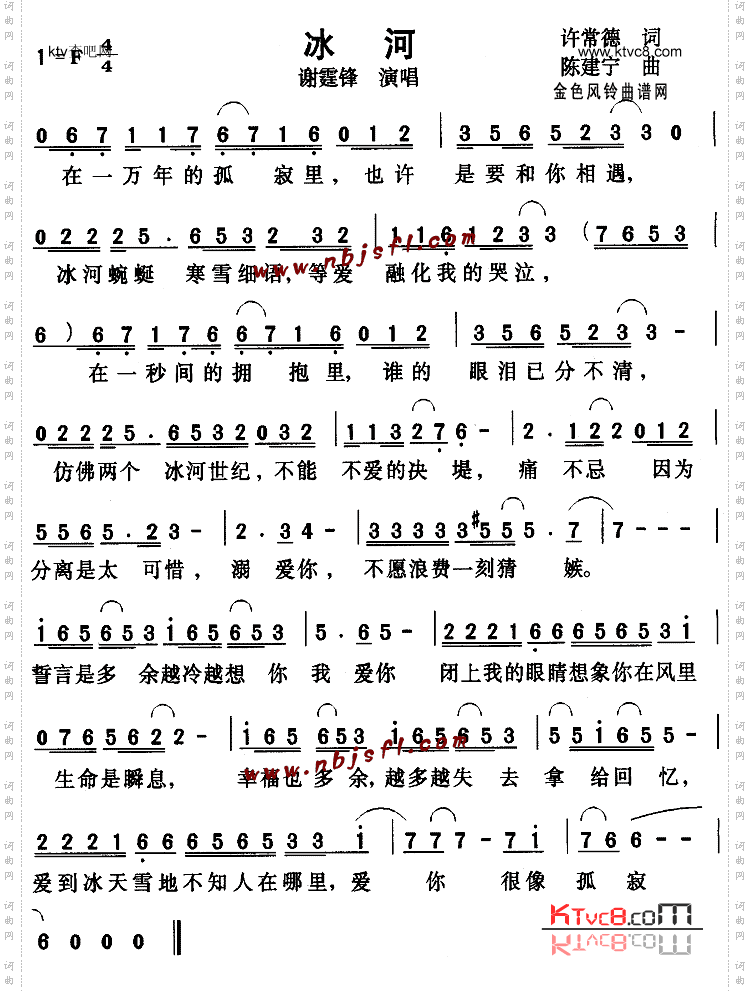 冰 河
1=F 4/4
ktv
谢霆锋 演唱
许常德 词
www.ktvc8.com
陈建宁 曲
金色风铃曲谱网
0 6 7 1 1 7 6 7 1 6 0 1 2 | 3 5 6 5 2 3 3 0 |
在一万年的孤 寂里，也许 是要和你相遇，
0 2 2 2 2 5. 6 5 3 2 2 3 2 | 1 1 6 1 2 3 3 3 (7 6 5 3
www.nbjsfl.com
冰河蜿蜒 寒雪细语，等爱 融化我的哭泣，
6 ) 6 7 1 7 6 6 7 1 6 0 1 2 | 3 5 6 5 2 3 3 3 -
在一秒间的拥 抱里，谁的 眼泪已分不清，
0 2 2 2 2 5. 6 5 3 2 0 3 2 | 1 1 3 2 7 6 - | 2. 1 2 2 0 1 2 |
仿佛两个 冰河世纪，不能 不爱的决 堤，痛 不忌 因为
5 5 6 5. 2 3 - | 2. 3 4 - | 3 3 3 3 3 #5 5 5. 7 | 7 - - - |
分离是太 可惜，溺 爱你，不愿浪费一刻猜 嫉。
1 6 5 6 5 3 1 6 5 6 5 3 | 5. 6 5 - | 2 2 2 1 6 6 6 5 6 5 3 1 |
誓言是多 余越冷越想 你 我 爱你 闭上我的眼睛想象你在风里
0 7 6 5 6 2 2 - | 1 6 5 6 5 3 1 6 5 6 5 3 | 5 5 1 6 5 5 - |
www.nbjsfl.com
生命是瞬息，幸福也多余，越多越失 去 拿 给回 忆，
2 2 2 1 6 6 5 6 5 3 3 1 | 7 7 7 - 7 1 | 7 6 6 - - |
爱到冰天雪地不知人在哪里，爱 你 很像 孤 寂
6 0 0 0 ‖
KTvc8.com